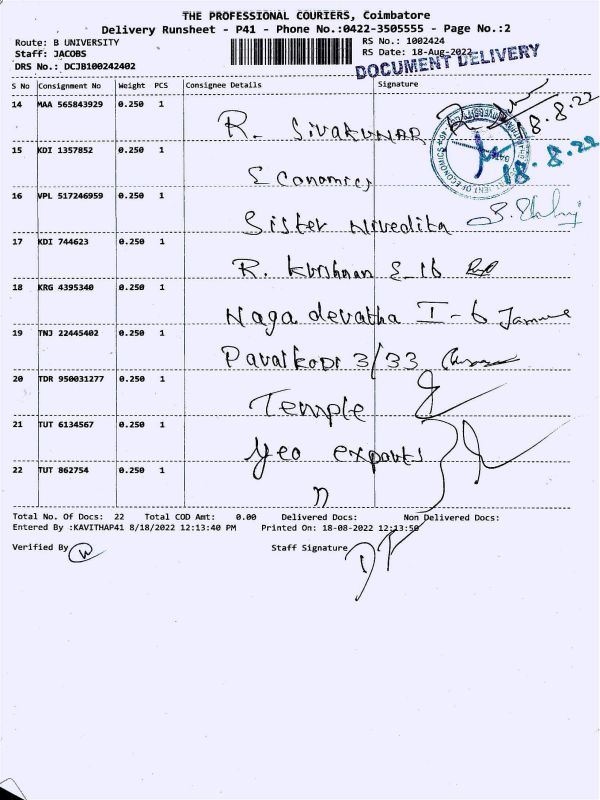 THE PROFESSIONAL COURIERS, Coimbatore
Delivery Runsheet - P41 - Phone No.:0422-3505555 - Page No.:2
Route: B UNIVERSITY RS No.: 1002424
Staff: JACOBS RS Date: 18-Aug-2022
DRS No.: DCJB100242402
DOCUMENT DELIVERY
S No Consignment No Weight PCS Consignee Details Signature
14 MAA 565843929 0.250 1 R. SIVAKUMAR 18.8.22
15 KDI 1357852 0.250 1 Economics 18.8.22
16 VPL 517246959 0.250 1 Sister Nivedita
17 KDI 744623 0.250 1 R. Krishnan E-16
18 KRG 4395340 0.250 1 Naga devatha I-6
19 TNJ 22445402 0.250 1 Pavalkodi 3/33
20 TDR 950031277 0.250 1 Temple
21 TUT 6134567 0.250 1 Yeo exports
22 TUT 862754 0.250 1 n
Total No. Of Docs: 22 Total COD Amt: 0.00 Delivered Docs: Non Delivered Docs:
Entered By :KAVITHAP41 8/18/2022 12:13:40 PM Printed On: 18-08-2022 12:13:50
Verified By Staff Signature